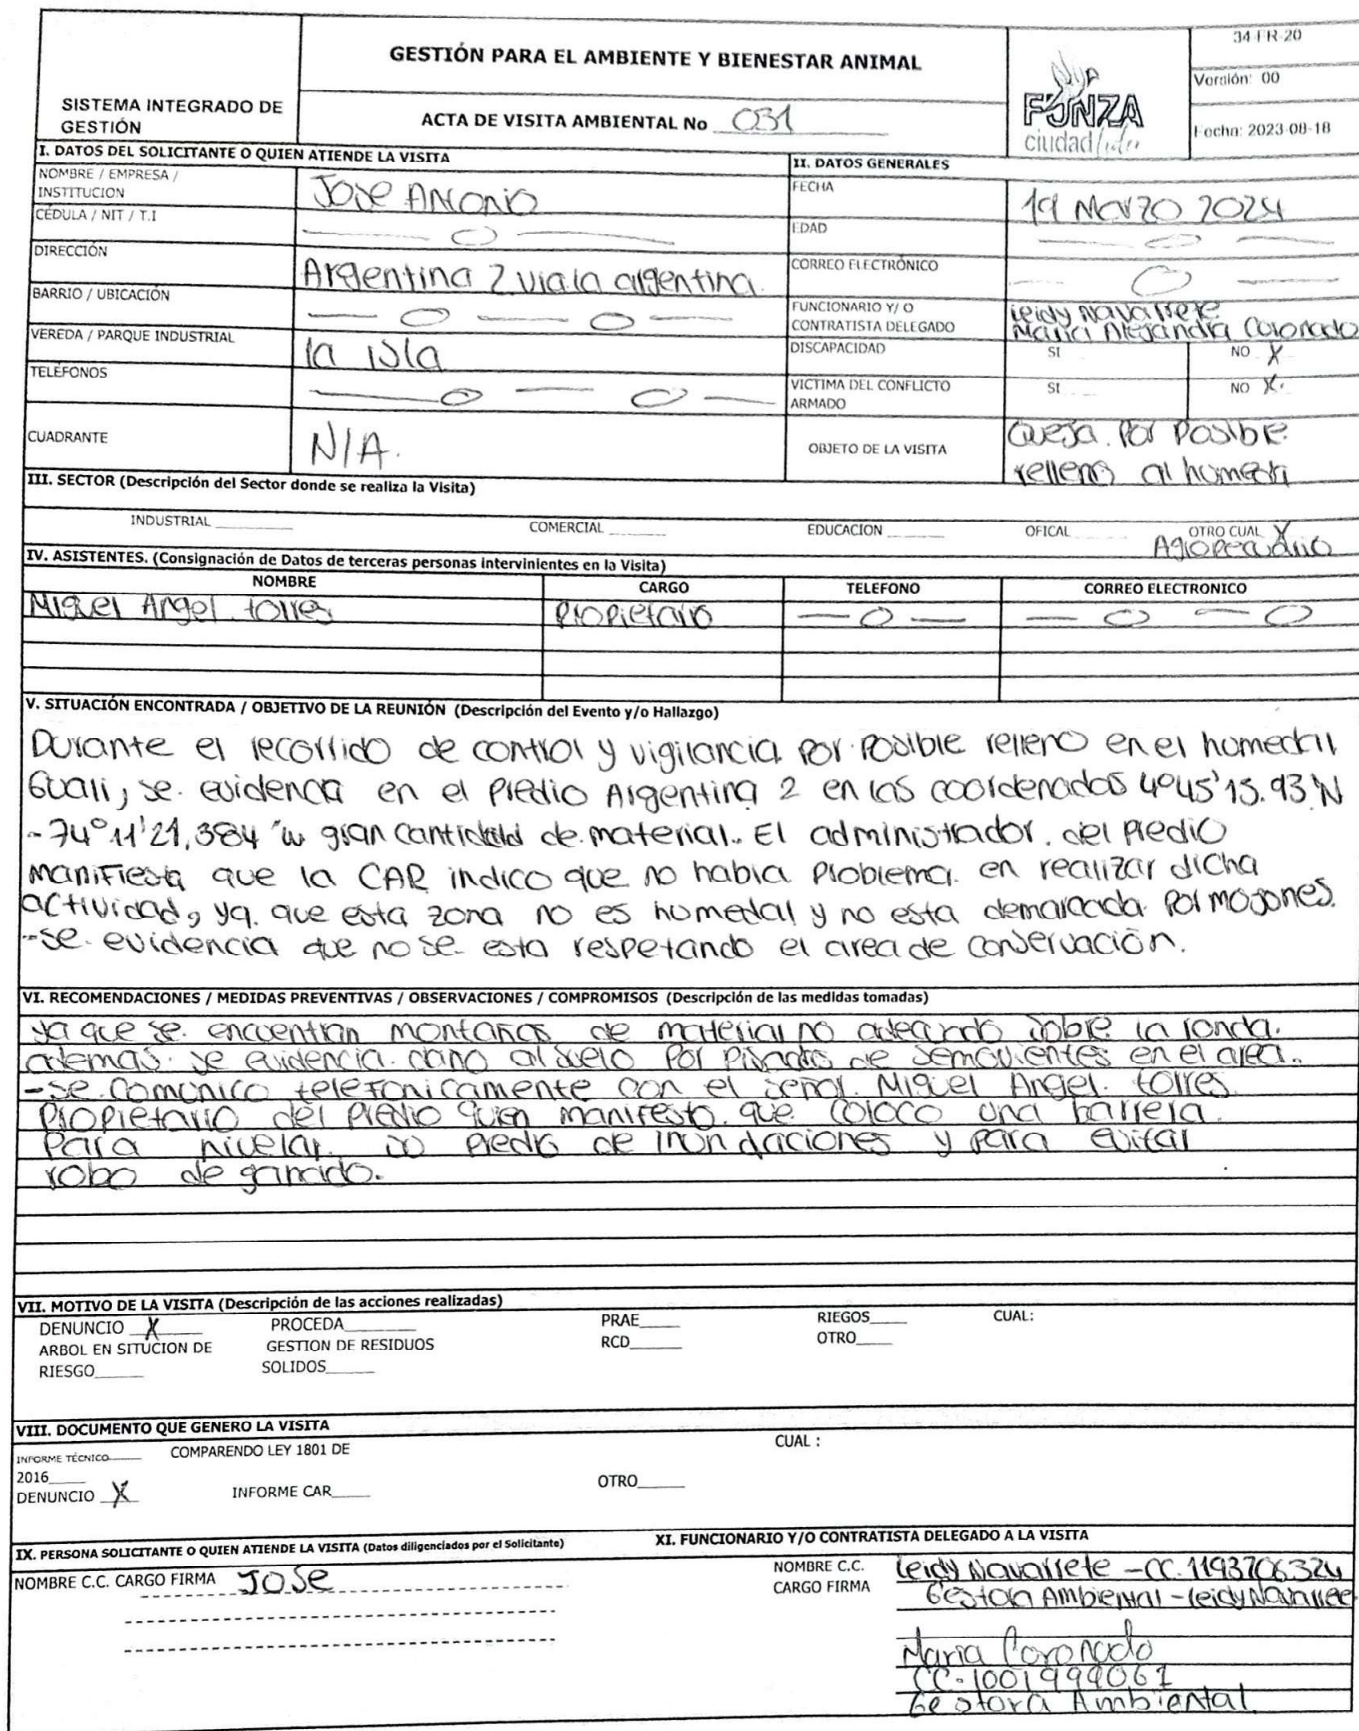 SISTEMA INTEGRADO DE
GESTIÓN
GESTIÓN PARA EL AMBIENTE Y BIENESTAR ANIMAL
ACTA DE VISITA AMBIENTAL No 031
FUNZA
ciudad líder
34-FR-20
Versión: 00
Fecha: 2023-08-18
I. DATOS DEL SOLICITANTE O QUIEN ATIENDE LA VISITA
NOMBRE / EMPRESA /
INSTITUCION
Jose Antonio
CÉDULA / NIT / T.I
DIRECCIÓN
Argentina 2 via la argentina
BARRIO / UBICACIÓN
VEREDA / PARQUE INDUSTRIAL
la isla
TELÉFONOS
CUADRANTE
N/A.
II. DATOS GENERALES
FECHA
19 Marzo 2024
EDAD
CORREO ELECTRÓNICO
FUNCIONARIO Y/ O
CONTRATISTA DELEGADO
leidy Navarrete
Maria Alejandra Coronado
DISCAPACIDAD
SI
NO X
VICTIMA DEL CONFLICTO
ARMADO
SI
NO X.
OBJETO DE LA VISITA
Queja. Por Posible
relleno al humedal
III. SECTOR (Descripción del Sector donde se realiza la Visita)
INDUSTRIAL COMERCIAL EDUCACION OFICAL OTRO CUAL X
Agropecuario
IV. ASISTENTES. (Consignación de Datos de terceras personas intervinientes en la Visita)
NOMBRE CARGO TELEFONO CORREO ELECTRONICO
Miguel Angel torres Propietario
V. SITUACIÓN ENCONTRADA / OBJETIVO DE LA REUNIÓN (Descripción del Evento y/o Hallazgo)
Durante el recorrido de control y vigilancia por posible relleno en el humedal
Guali, se evidencia en el Predio Argentina 2 en las coordenadas 4°45'15.93"N
-74°11'21,384"w gran cantidad de material. El administrador del predio
manifiesta que la CAR indico que no habia problema en realizar dicha
actividad, ya que esta zona no es humedal y no esta demarcada por mojones.
-se evidencia que no se esta respetando el area de conservación.
VI. RECOMENDACIONES / MEDIDAS PREVENTIVAS / OBSERVACIONES / COMPROMISOS (Descripción de las medidas tomadas)
ya que se encuentran montañas de material no adecuado sobre la ronda.
ademas se evidencia daño al suelo por pisadas de semovientes en el area.
-se comunico telefonicamente con el señor Miguel Angel torres
Propietario del predio quien manifesto que coloco una barrera
para nivelar su predio de inundaciones y para evitar
robo de ganado.
VII. MOTIVO DE LA VISITA (Descripción de las acciones realizadas)
DENUNCIO X PROCEDA PRAE RIEGOS CUAL:
ARBOL EN SITUCION DE GESTION DE RESIDUOS RCD OTRO
RIESGO SOLIDOS
VIII. DOCUMENTO QUE GENERO LA VISITA
INFORME TÉCNICO COMPARENDO LEY 1801 DE CUAL :
2016
DENUNCIO X INFORME CAR OTRO
IX. PERSONA SOLICITANTE O QUIEN ATIENDE LA VISITA (Datos diligenciados por el Solicitante)
NOMBRE C.C. CARGO FIRMA Jose
XI. FUNCIONARIO Y/O CONTRATISTA DELEGADO A LA VISITA
NOMBRE C.C.
CARGO FIRMA
leidy Navarrete - CC. 1193706324
Gestora Ambiental - leidy Navarrete
Maria Coronado
CC. 1001999061
Gestora Ambiental